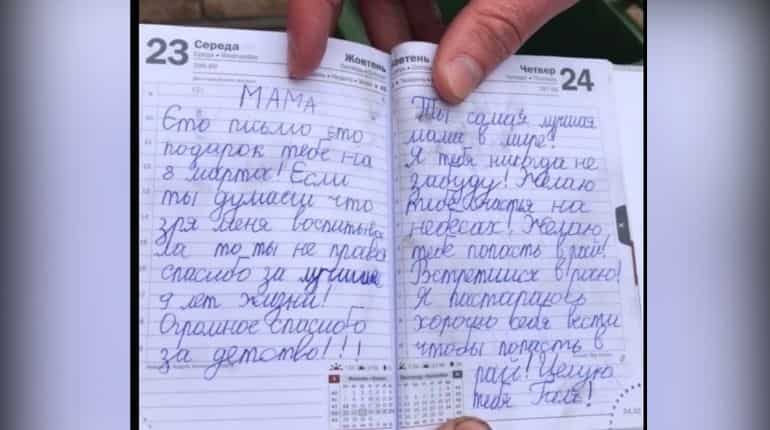 23 Середа
Жовтень
МАМА
Єто письмо ето
подарок тебе на
8 марта! Если
ты думаеш что
зря меня воспитыва
ла то ты не права
спасибо за лучшие
9 лет жизни!
Огромное спасибо
за детство!!!
Четвер 24
Ты самая лучшая
мама в мире!
Я тебя никогда не
забуду! Желаю
тебе счастья на
небесах! Желаю
тебе попасть в рай!
Встретимся в раю!
Я пастараюсь
хорошо себя вести
чтобы попасть в
рай! Целую
тебя